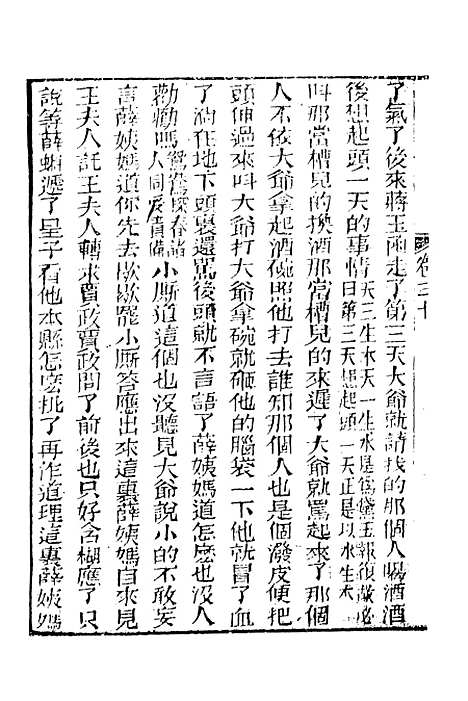 了氣了後來蔣玉函走了第三天大爺就請找的那個人喝酒酒
後想起頭一天的事情天三生木天一生水是爲黛玉報復故必曰第三天想起頭一天正是以水生木
叫那當槽兒的換酒那當槽兒的來遲了大爺就罵起來了那個
人不依大爺拿起酒碗照他打去誰知那個人也是個潑皮便把
頭伸過來叫大爺打大爺拿碗就砸他的腦袋一下他就冒了血
了淌在地下頭裏還罵後頭就不言語了薛姨媽道怎麼也沒人
勸勸嗎鴛鴦探春諸人同爱責備小厮道這個也沒聽見大爺說小的不敢妄
言薛姨媽道你先去歇歇罷小厮答應出來這裏薛姨媽自來見
王夫人託王夫人轉求賈政賈政問了前後也只好含糊應了只
說等薛蝌遞了呈子看他本縣怎麼批了再作道理這裏薛姨媽
卷三十